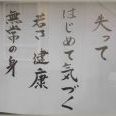 失って
はじめて気づく
若さ 健康
無常の身